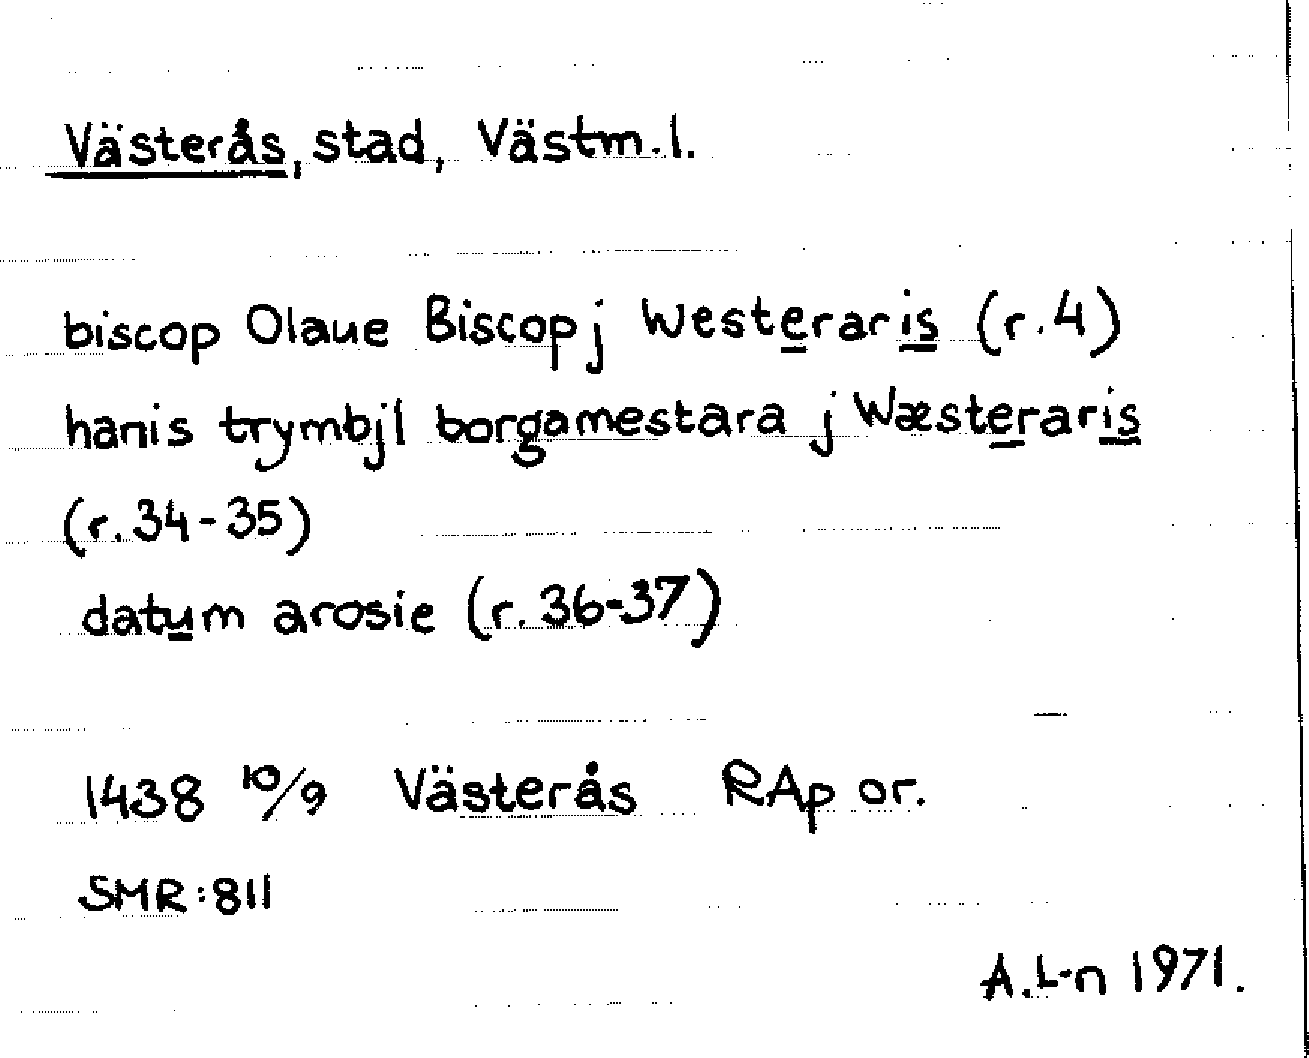 Västerås, stad, Västm.l.
biscop Olaue Biscop j Westeraris (r.4)
hanis trymbjl borgamestara j Wæsteraris
(r.34-35)
datum arosie (r.36-37)
1438 10/9 Västerås RAp or.
SMR:811
A.L-n 1971.